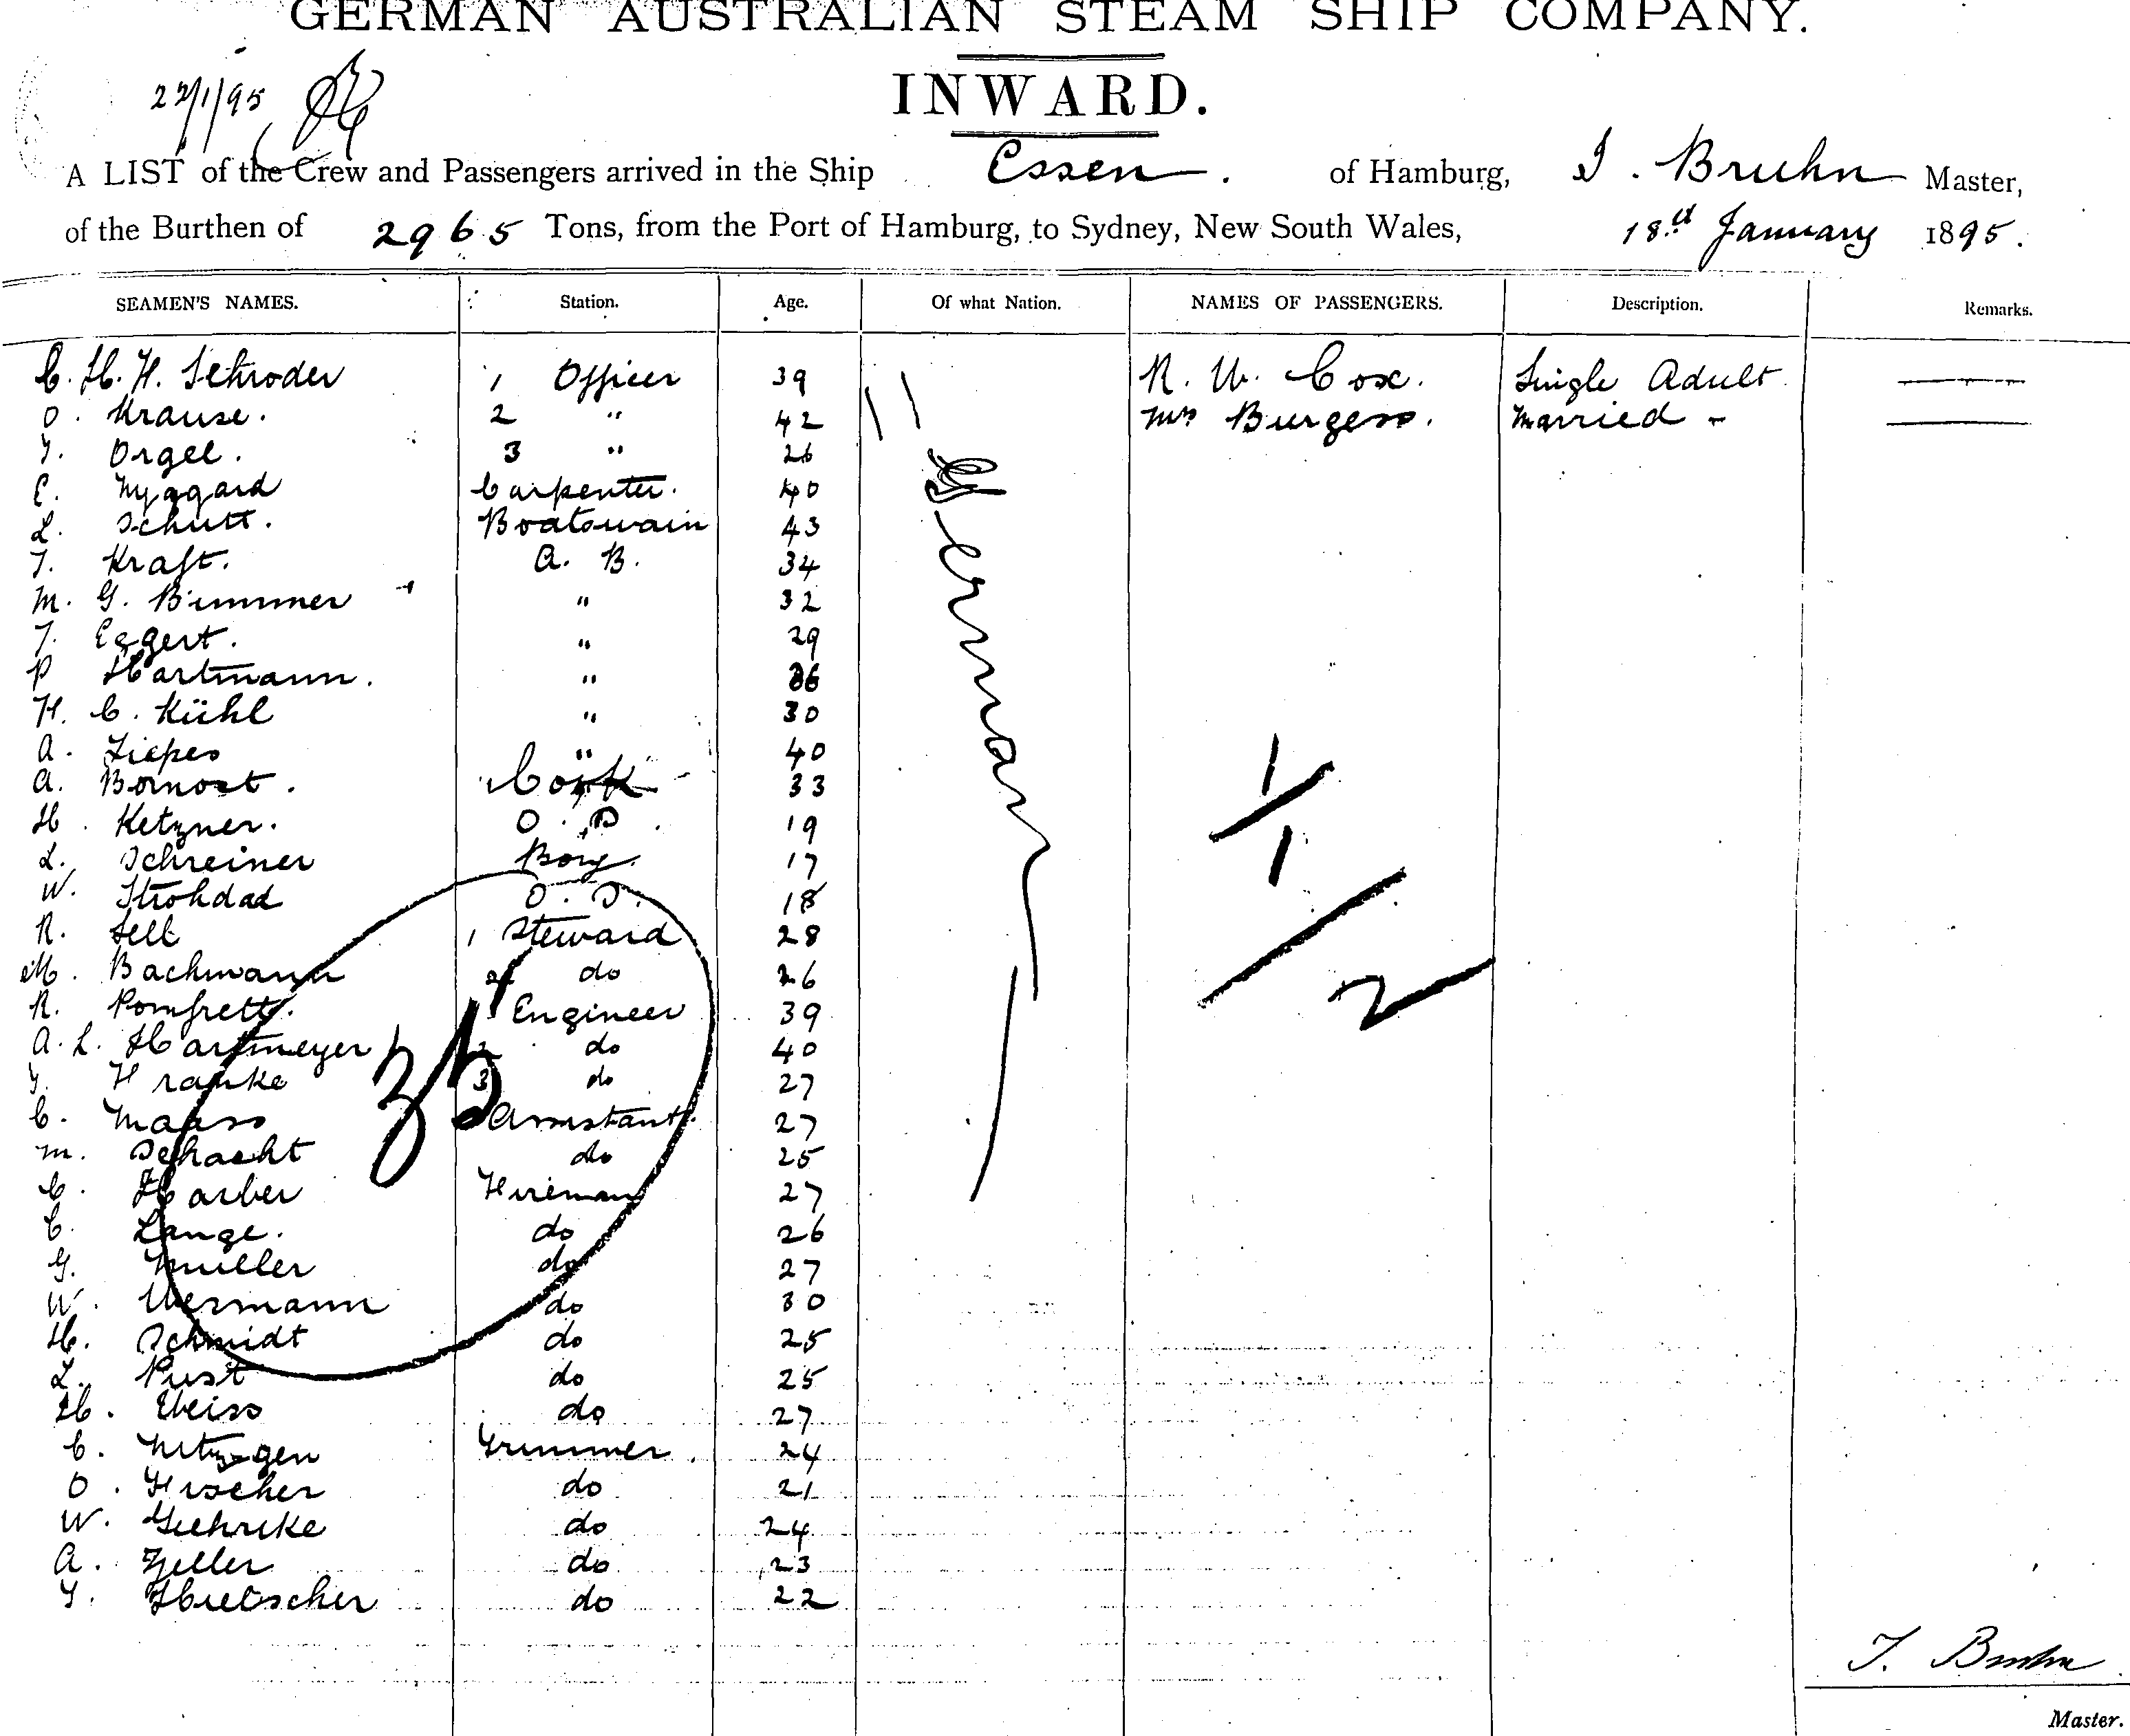 GERMAN AUSTRALIAN STEAM SHIP COMPANY.
INWARD.
22/1/95
A LIST of the Crew and Passengers arrived in the Ship Essen. of Hamburg, J. Bruhn Master,
of the Burthen of 2965 Tons, from the Port of Hamburg, to Sydney, New South Wales, 18th January 1895.
SEAMEN'S NAMES. Station. Age. Of what Nation. NAMES OF PASSENGERS. Description. Remarks.
C. H. H. Schroder 1 Officer 39 German R. W. Cox. Single Adult
O. Krause. 2 " 42 Mrs Burgess. Married -
Orgel. 3 " 26
E. Nyggard Carpenter. 40
L. Schutt. Boatswain 43
Kraft. A. B. 34
M. G. Bummer " 32
Eggert. " 29
P Hartmann. " 36
H. C. Kühl " 30
A. " 40
A. Bornost. Cook 33
H. Ketzner. O. S. 19
L. Schreiner Boy. 17
W. Strohdad O. S. 18
R. Sell 1 Steward 28
M. Bachmann 2 do 26
R. Pomfrett. 1 Engineer 39
A. L. Hartmeyer 2 do 40
3 do 27
C. Maass Assistant. 27
M. Schacht do 25
C. Harber Fireman 27
C. Lange. do 26
G. Muller do 27
W. do 30
H. Schmidt do 25
L. Pust do 25
H. Weiss do 27
C. Trimmer. 24
O. Fischer do 21
W. Gehrike do 24
A. Zeller do 23
do 22
35
1
1
2
J. Bruhn
Master.